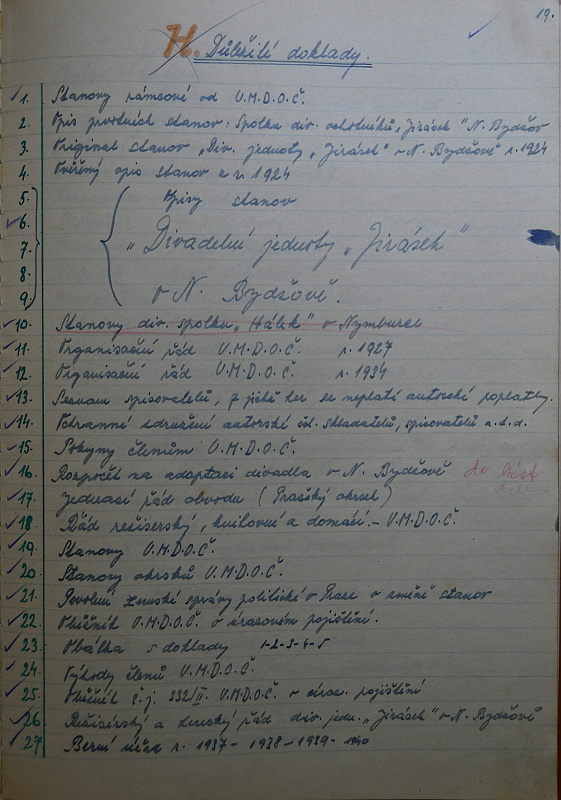 19.
H. Důležité doklady.
1. Stanovy rámcové od Ú.M.D.O.Č.
2. Opis prvotních stanov: Spolku div. ochotníků „Jirásek" N. Bydžov
3. Originál stanov „Div. jednoty „Jirásek" v N. Bydžově r. 1924
4. Ověřený opis stanov z r. 1924
5. Opisy stanov
6.
7. „Divadelní jednoty „Jirásek"
8.
9. v N. Bydžově.
10. Stanovy div. spolku „Hálek" v Nymburce
11. Organisační řád Ú.M.D.O.Č. r. 1927
12. Organisační řád Ú.M.D.O.Č. r. 1934
13. Seznam spisovatelů, z jichž her se neplatí autorské poplatky.
14. Ochranné sdružení autorské čsl. skladatelů, spisovatelů a.t.d.
15. Pokyny členům Ú.M.D.O.Č.
16. Rozpočet na adaptaci divadla v N. Bydžově do
17. Jednací řád obvodu (Pražský okrsek)
18. Řád režisérský, knihovní a domácí. - Ú.M.D.O.Č.
19. Stanovy Ú.M.D.O.Č.
20. Stanovy okrsků Ú.M.D.O.Č.
21. Povolení zemské správy politické v Praze o změně stanov
22. Oběžník Ú.M.D.O.Č. o úrazovém pojištění.
23. Obálka s doklady 1-2-3-4-5
24. Výhody členů Ú.M.D.O.Č.
25. Oběžník č.j. 332/II. Ú.M.D.O.Č. o úraz. pojištění
26. Režisérský a herecký řád div. jedn. „Jirásek" v N. Bydžově
27. Berní úřad r. 1937 - 1938 - 1939 - 1940